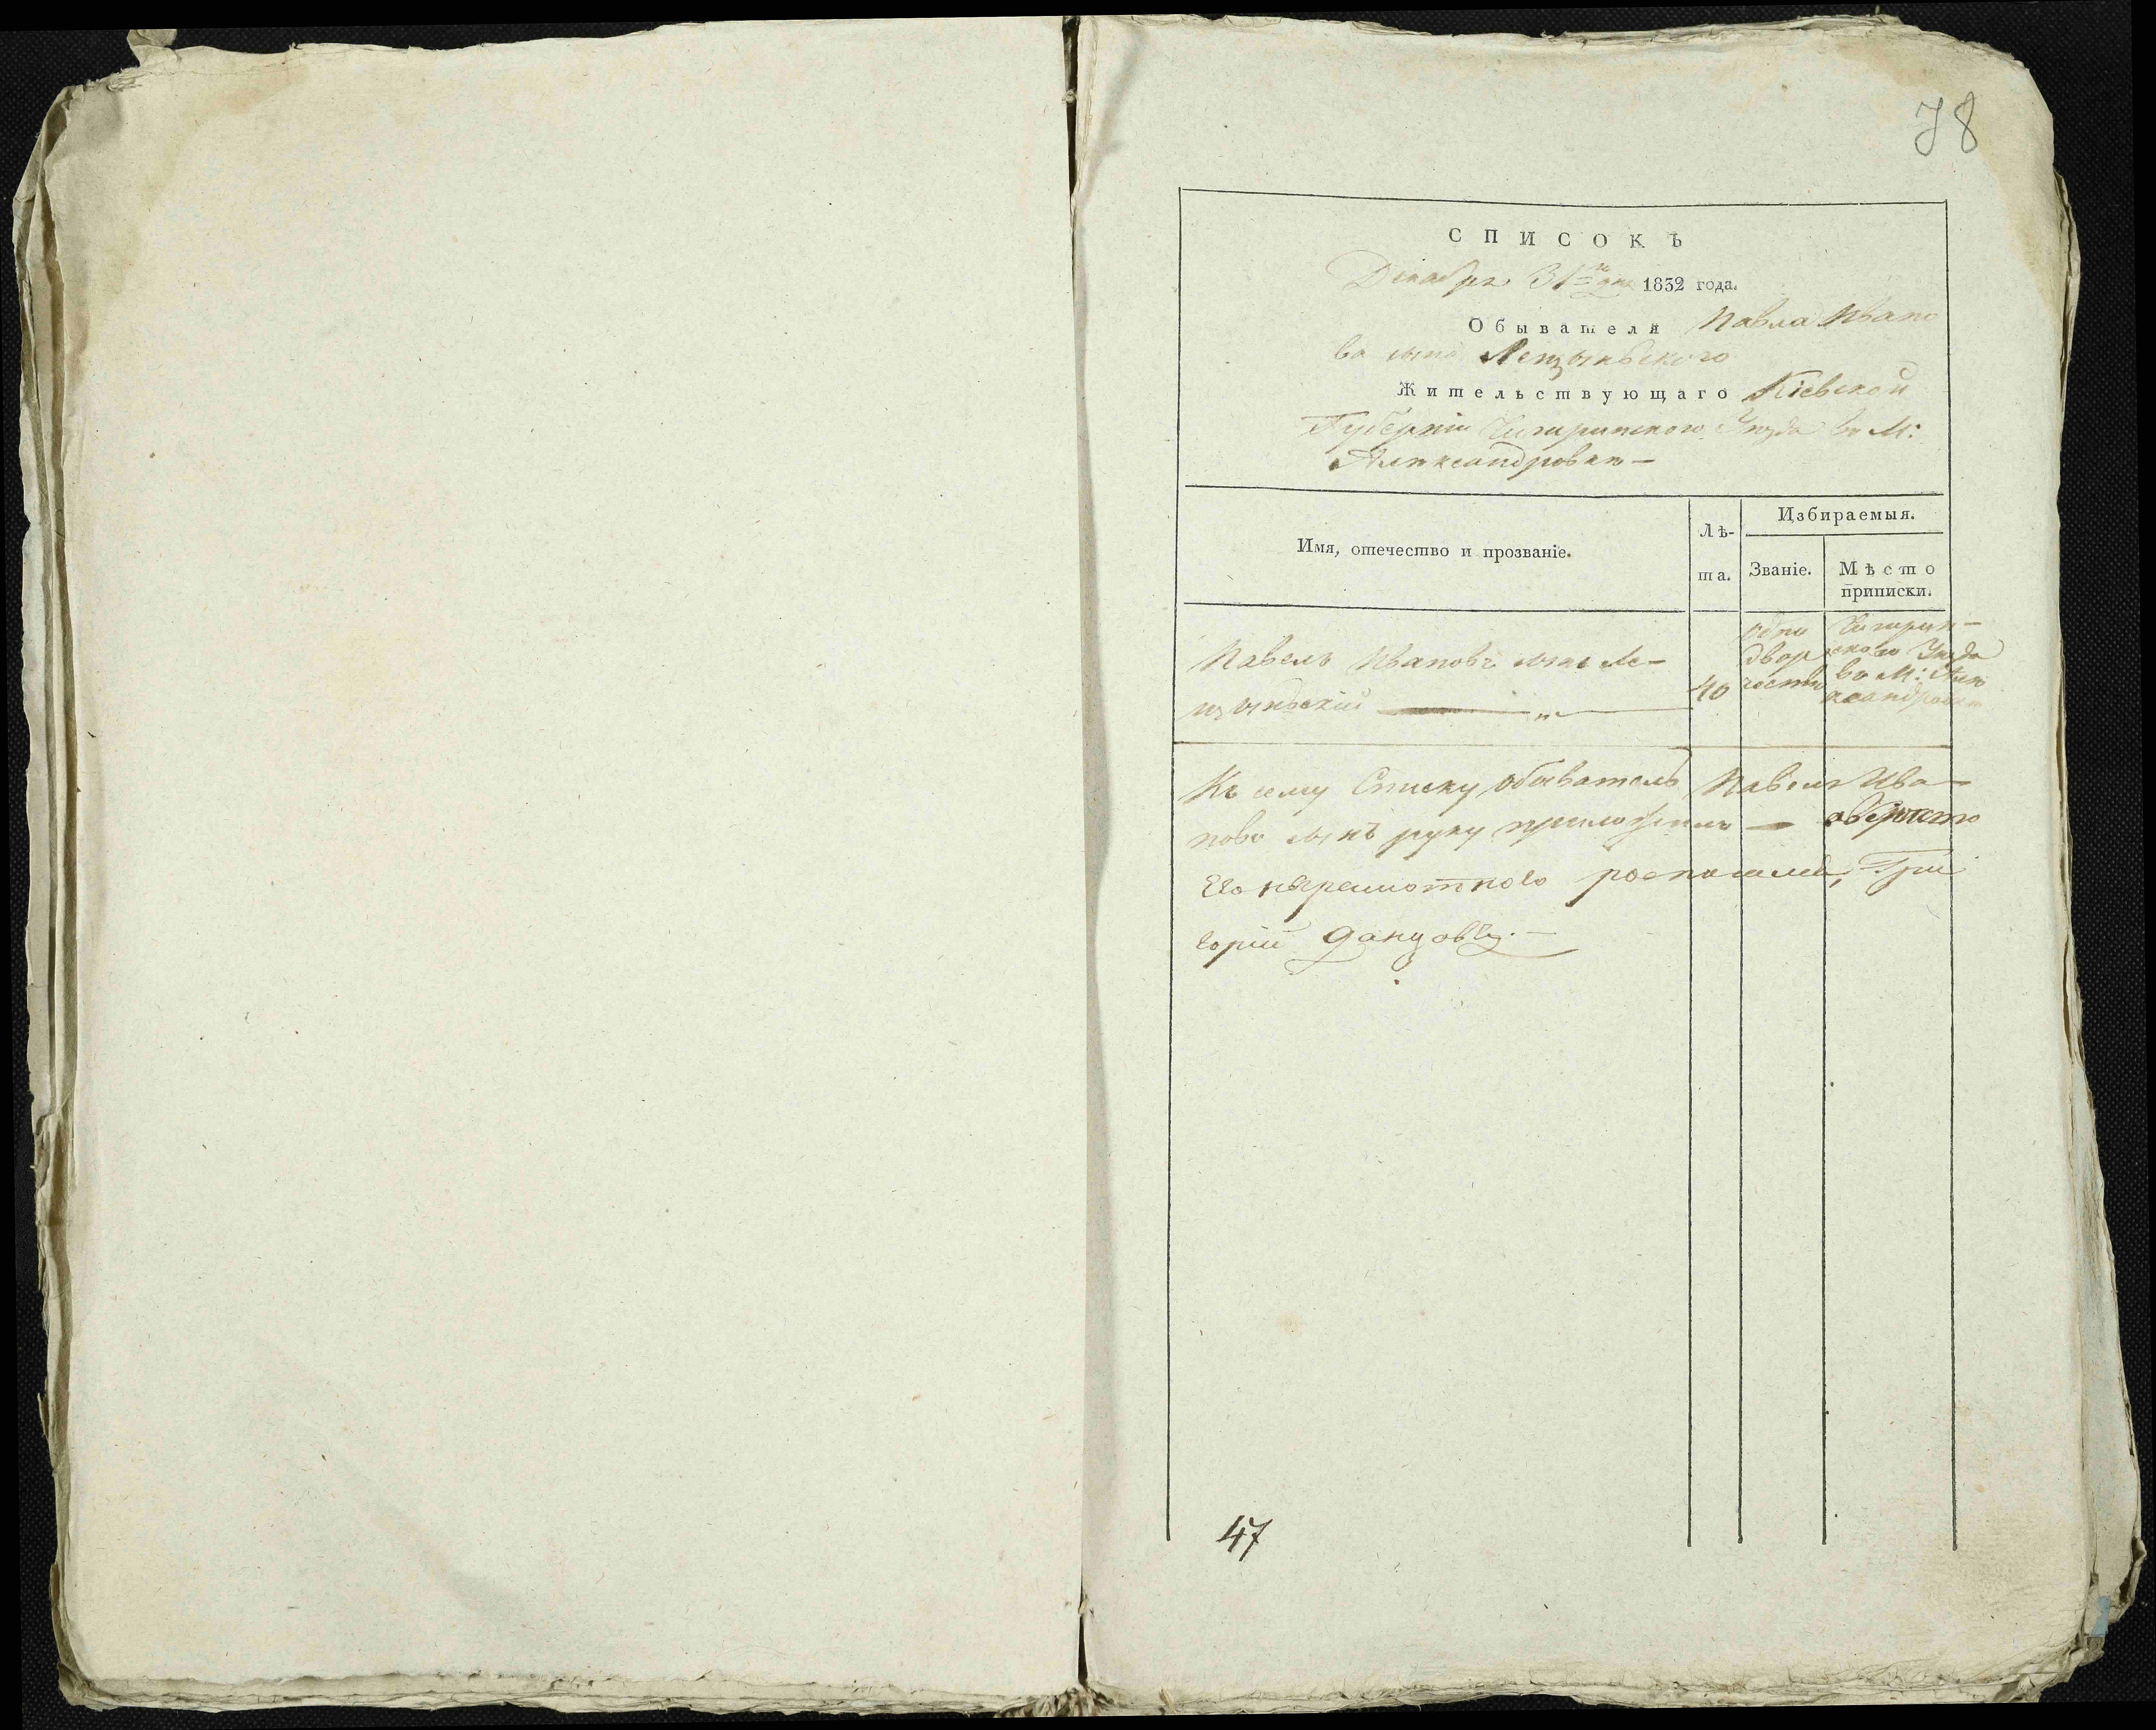 78
СПИСОКЪ
Декабря 31го дня 1832 года.
Обывателя Павла Ивано
ва сына
Жительствующаго Кіевской
Губерніи Чигиринского Уезда в М:
Александровки —
Имя, отечество и прозваніе.
Лѣ-
та.
Избираемыя.
Званіе.
Мѣсто
приписки.
Павелъ Ивановъ сынъ Ле-
40
одно
двор
Чигирин-
ского Уезда
во М: Алек
сандровки
Къ сему Списку обыватель Павелъ Ива-
новъ сынъ руку приложилъ — а вместо
Его неграмотного росписался, Гри
горій
47